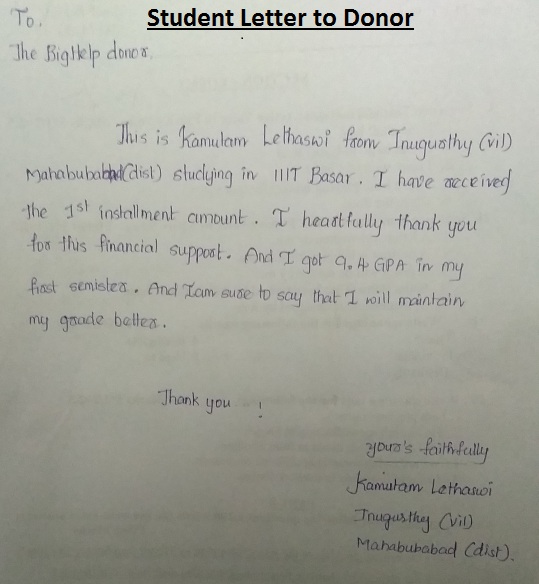 Student Letter to Donor
To,
The BigHelp donor.
This is Kamulam Lethaswi from Inugurthy (vil)
Mahabubabad(dist) studying in IIIT Basar. I have received
the 1st installment amount. I heartfully thank you
for this financial support. And I got 9.4 GPA in my
first semister. And Iam sure to say that I will maintain
my grade better.
Thank you !
your's faithfully
Kamulam Lethaswi
Inugurthy (vil)
Mahabubabad (dist).